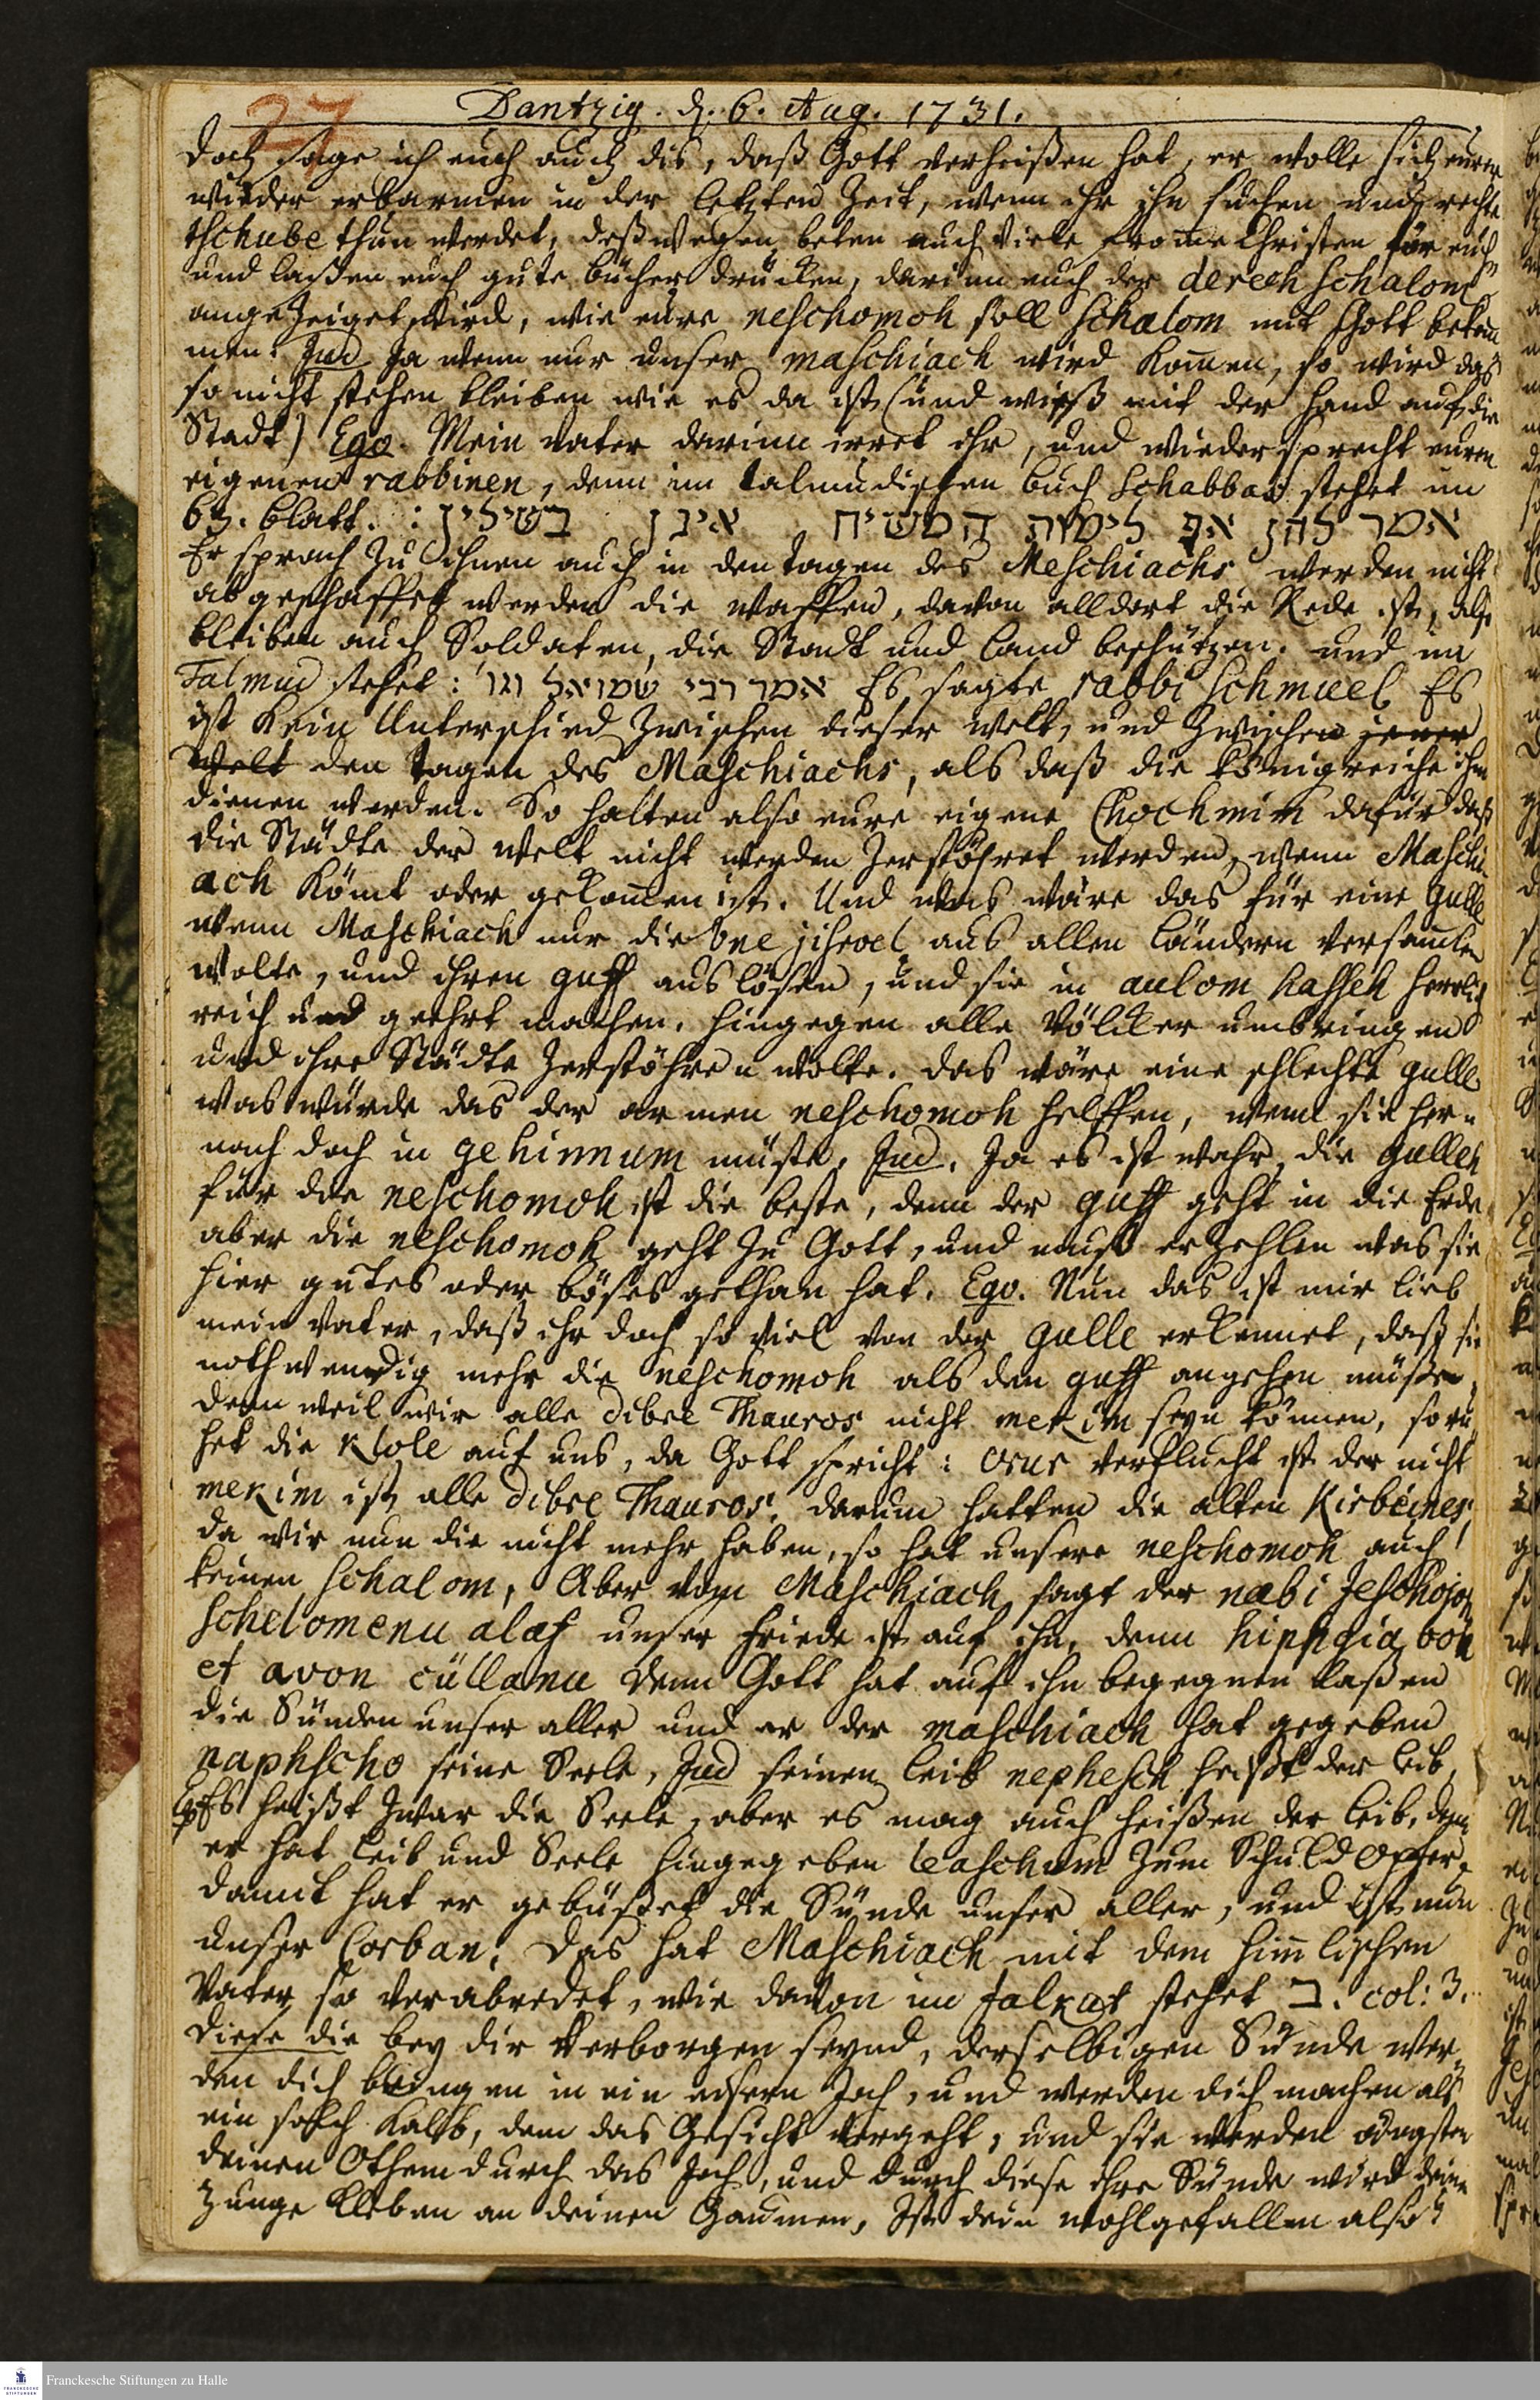 27
Dantzig. d. 6. Aug. 1731.
doch sage ich euch auch dis, daß Gott verheißen hat, er wolle sich eurer
wieder erbarmen in der letzten Zeit, wenn ihr ihn suchen und rechte
tschube thun werdet, deßwegen beten auch viele frome Christen für euch
und laßen euch gute bücher drücken, darinn euch der derech schalom
angezeiget wird, wie eure neschomoh soll schalom mit Gott bekom
men. Jud Ja wenn nur unser maschiach wird komen, so wird das
so nicht stehen bleiben wie es da ist (und wieß mit der Hand auf die
Stadt) Ego. Mein Vater darinn irret ihr, und wiedersprecht euren
eigenen rabbinen, denn im talmudischen buch Schabbas stehet im
63. blatt. : אמר להן אף לימות המשיח אינן בטילין
Er sprach zu ihnen auch in den tagen des Meschiachs werden nicht
abgeschaffet werden die waffen, davon alldort die Rede ist, also
bleiben auch Soldaten, die Stadt und Land beschützen. und im
Talmud stehet: אמר רבי שמואל וגו' Es sagte rabbi Schmuel Es
ist kein Unterschied zwischen dieser welt, und zwischen jener
Welt den tagen des Maschiachs, als daß die königreiche ihm
dienen werden. So halten also eure eigene Chochmim dafür daß
die Städte der welt nicht werden zerstöhret werden, wenn Maschi-
ach kömt oder gekomen ist. Und was wäre das für eine Gulle
wenn Maschiach nur die bne jisroel aus allen ländern versamlen
wolte, und ihren guff auslösen, und sie in aulom hasseh herrlich
reich und geehrt machen. hingegen alle Völcker umbringen
und ihre Städte zerstöhren wolte. das wäre eine schlechte gulle.
was würde das der armen neschomoh helffen, wenn sie her-
nach doch in gehinnum müste. Jud. Ja es ist wahr, die gulleh
für die neschomoh ist die beste, denn der guff geht in die Erde,
aber die neschomoh geht zu Gott, und muß erzehlen was sie
hier gutes oder böses gethan hat. Ego. Nun das ist mir lieb
mein Vater, daß ihr doch so viel von der gulle erkennet, daß sie
nothwendig mehr die neschomoh als den guff angehen müße,
denn weil wir alle dibre Thauros nicht mekim seyn können, so ru
het die klole auf uns, da Gott spricht: orur verflucht ist der nicht
mekim ist alle dibre Thauros. darum hatten die alten Kirbeines,
da wir nun die nicht mehr haben, so hat unsere neschomoh auch
keinen schalom, Aber vom Maschiach sagt der nabi Jeschojoh
schelomenu alaf unser friede ist auf ihn, denn hiphgia boh
et avon cüllanu denn Gott hat auf ihn begegnen laßen
die Sünden unser aller und er der maschiach hat gegeben
naphscho seine Seele, Jud seinen leib nephesch heißt der leib,
Es heißt zwar die Seele, aber es mag auch heißen der leib, denn
er hat leib und Seele hingegeben leaschum zum Schuld Opfer,
damit hat er gebüßet die Sünde unser aller, und ist nun
unser Corban. Das hat Maschiach mit dem himlischen
Vater so verabredet, wie davon im Jalkut stehet ב. col: 3.
diese die bey dir verborgen seynd, derselbigen Sünde wer
den dich bringen in ein eisern Joch, und werden dich machen als
ein solch kalb, dem das Gesicht vergeht, und sie werden ängsten
deinen Othem durch das Joch, und durch diese ihre Sünde wird deine
Zunge kleben an deinen Gaumen, Ist dein wohlgefallen also?
Franckesche Stiftungen zu Halle